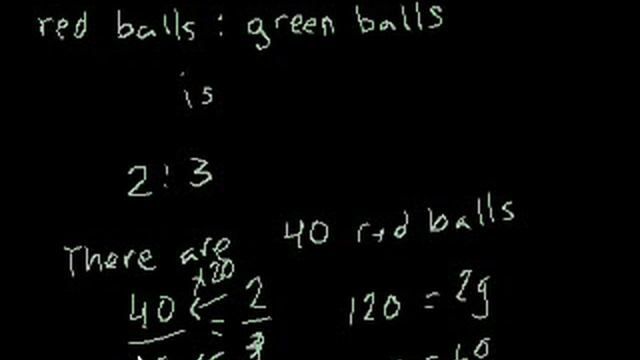 red balls : green balls
is
2 : 3
There are 40 red balls
×20
40 = 2 120 = 2g
3